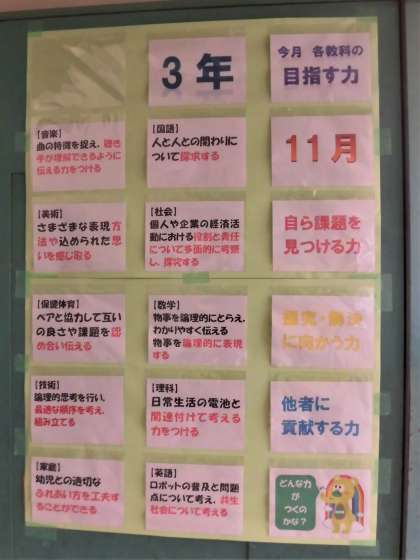 ３年
今月 各教科の
目指す力
11月
【音楽】
曲の特徴を捉え、聴き
手が理解できるように
伝える力をつける
【国語】
人と人との関わりに
ついて探求する
【美術】
さまざまな表現方
法や込められた思
いを感じ取る
【社会】
個人や企業の経済活
動における役割と責任
について多面的に考察
し、探究する
自ら課題を
見つける力
【保健体育】
ペアと協力して互い
の良さや課題を認
め合い伝える
【数学】
物事を論理的にとらえ、
わかりやすく伝える
物事を論理的に表現
する
・解決
に向かう力
【技術】
論理的思考を行い、
最適な順序を考え、
組み立てる
【理科】
日常生活の電池と
関連付けて考える
力をつける
他者に
貢献する力
【家庭】
幼児との適切な
ふれあい方を工夫す
ることができる
【英語】
ロボットの普及と問題
点について考え、共生
社会について考える
どんな力
が
つくの
かな？